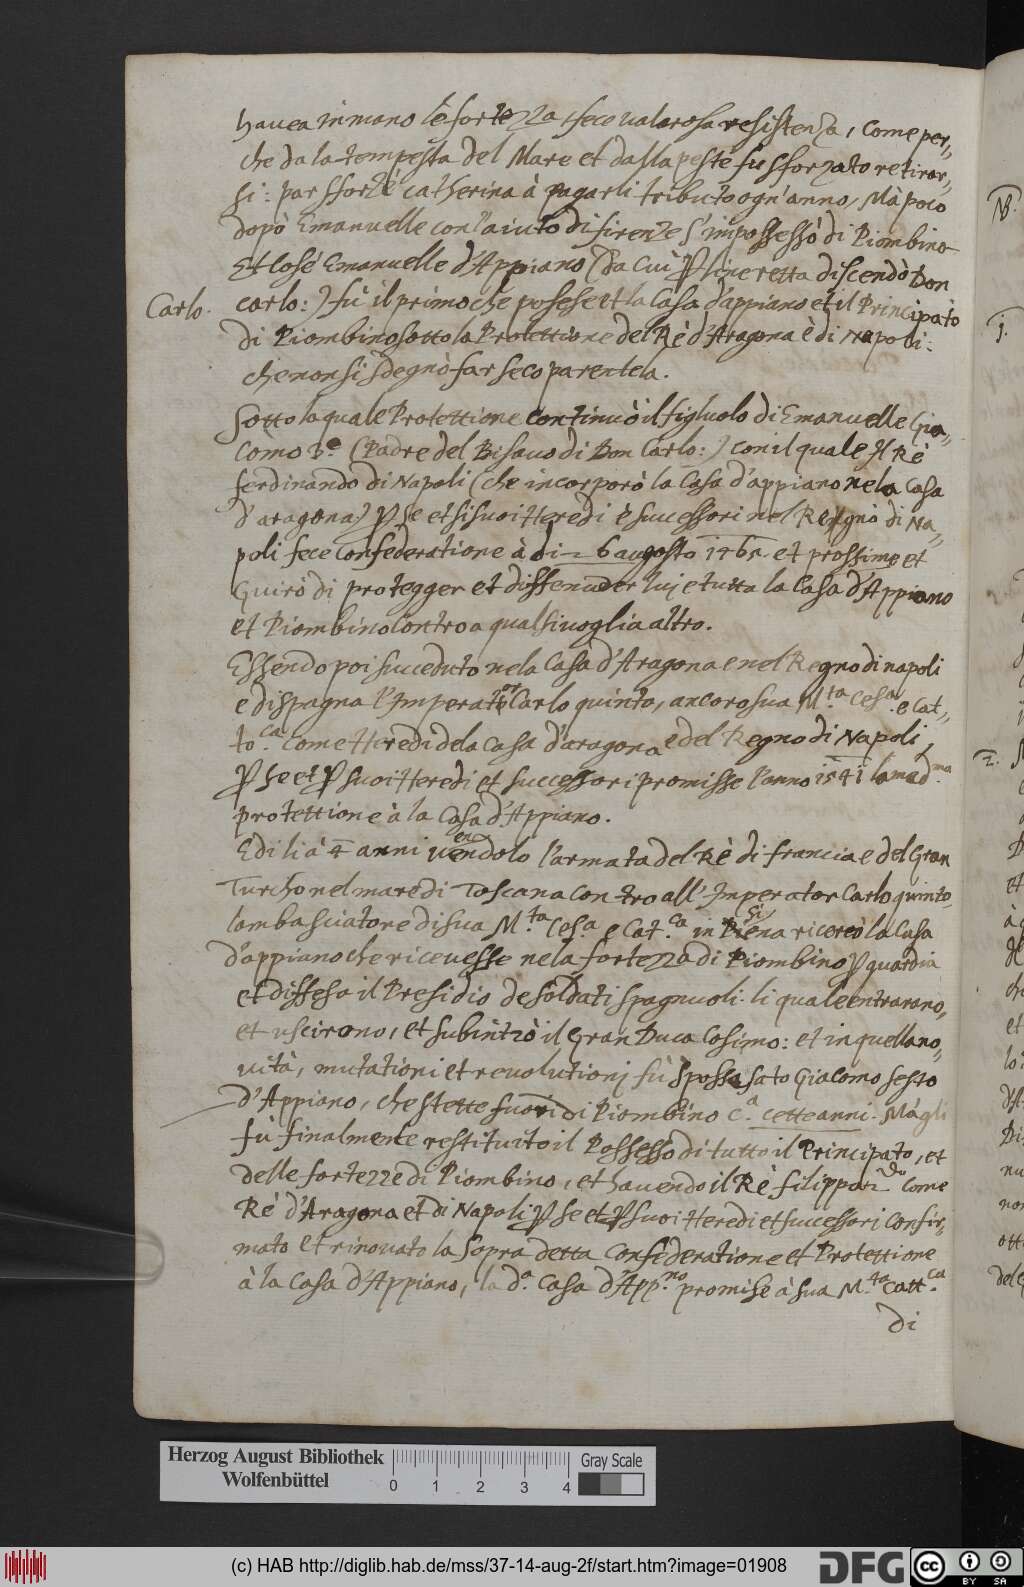 hauea in mano le fortezza, fece ualarosa resistenza, come per=
che da la tempesta del Mare et dalla peste fù sforzato retirar=
si: par sforzè Catherina à pagarli tributo ogn'anno, Mà poco
dopò Emanuelle con l'aiuto di firenze s'impossessò di Piombino
Et Cosé Emanuelle d'Appiano (da Cui ꝑ line retta discendò Don
Carlo.
carlo:) fù il primo che posesett la Casa d'appiano et il Principato
di Piombino sotto la Protettione del Rè d'Aragona è di Napoli:
che non si sdegnò far seco parentela.
Sotto la quale Protettione continuò il figluolo di Emanuelle Gia=
como 3.º (Padre del Bisauo di Don Carlo:) con il quale Il Rè
ferdinando di Napoli (che incorporò la Casa d'appiano nela Casa
d'aragona) ꝑ se et si suoi Heredi è successori nel Regno di Na=
poli fece Confederatione à di 6 augosto 1465 et prossime et
Guirò di protegger et diffender lui e tutta la Casa d'Appiano
et Piombino Contro a qualsiuoglia altro.
Essendo poi succeduto nela Casa d'Aragona e nel Regno di napoli
e dispagna l'Imperator Carlo quinto, ancoro sua M.ta Ces.a e Cat=
to.ca Come Heredi dela Casa d'aragona e del Regno di Napoli,
ꝑ se et ꝑ suoi Heredi et successori promisse l'anno 1541 la mad.ma
protettione à la Casa d'Appiano.
E di li à 4 anni uenendo lo l'armata del Rè di francia e del Gran
Turcho nel mare di Toscana Contro all'Imperator Carlo quinto
lambasciatore di sua M.ta Ces.a e Cat.ca in Siena ricercò la Casa
d'appiano che riceuesse nela fortezza di Piombino ꝑ guardia
et diffesa il Presidio de Soldati spagnuoli: li quale entrarano,
et uscirono, et subintrò il Gran Duca Cosimo: et in quella no=
uità, mutationi et reuolutioni fù spossasato Giacomo sesto
d'Appiano, che stette fuori di Piombino c.a cette anni. Mà gli
fù finalmente restituito il Possesso di tutto il Principato, et
delle fortezze di Piombino, et hauendo il Rè filippo 2.do Come
Rè d'Aragona et di Napoli ꝑ se et ꝑ suoi Heredi et successori Confir=
mato et rinouato la sopra detta Confederatione et Protettione
à la Casa d'Appiano, la d.a Casa d'App.no promise à sua M.ta Catt.ca
di
N3.
1.
2.
Herzog August Bibliothek
Wolfenbüttel
0 1 2 3 4
Gray Scale
(c) HAB http://diglib.hab.de/mss/37-14-aug-2f/start.htm?image=01908
DFG
cc BY SA